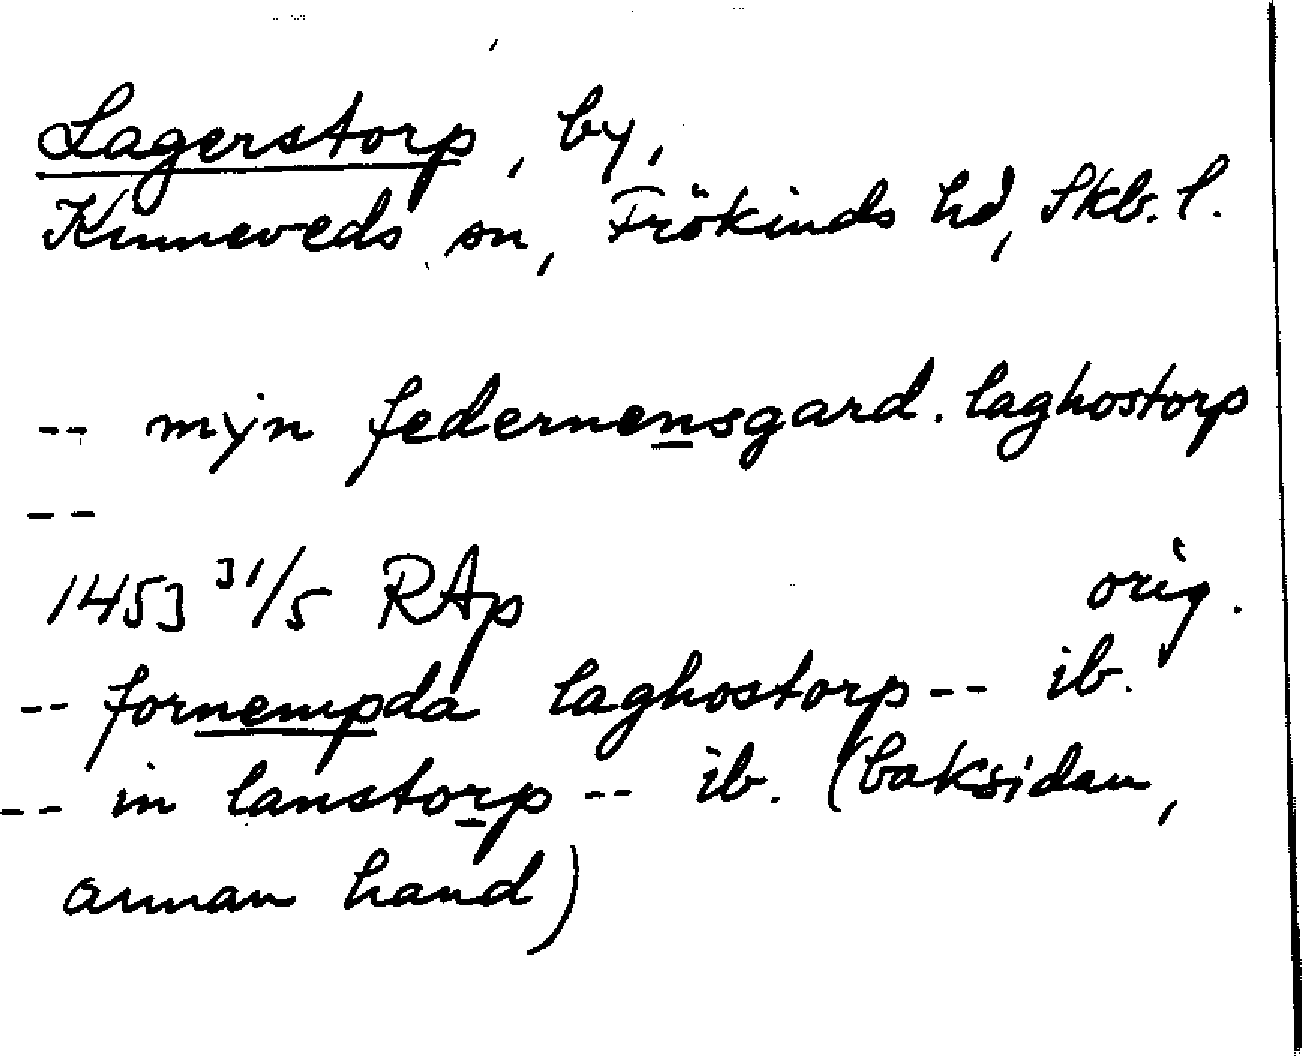 Lagerstorp, by,
Kinneveds sn, Frökinds hd, Skb. l.
-- myn federnensgard. laghostorp
--
1453 31/5 RAp orig.
-- fornempda laghostorp -- ib.
-- in lanstorp -- ib. (baksidan,
annan hand)